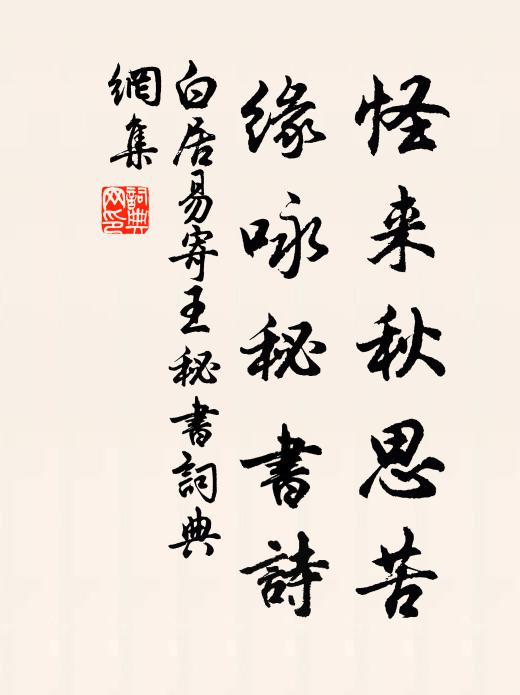 怪来秋思苦
緣咏秘書詩
白居易寄王秘書詞典
網集
詞典
网印